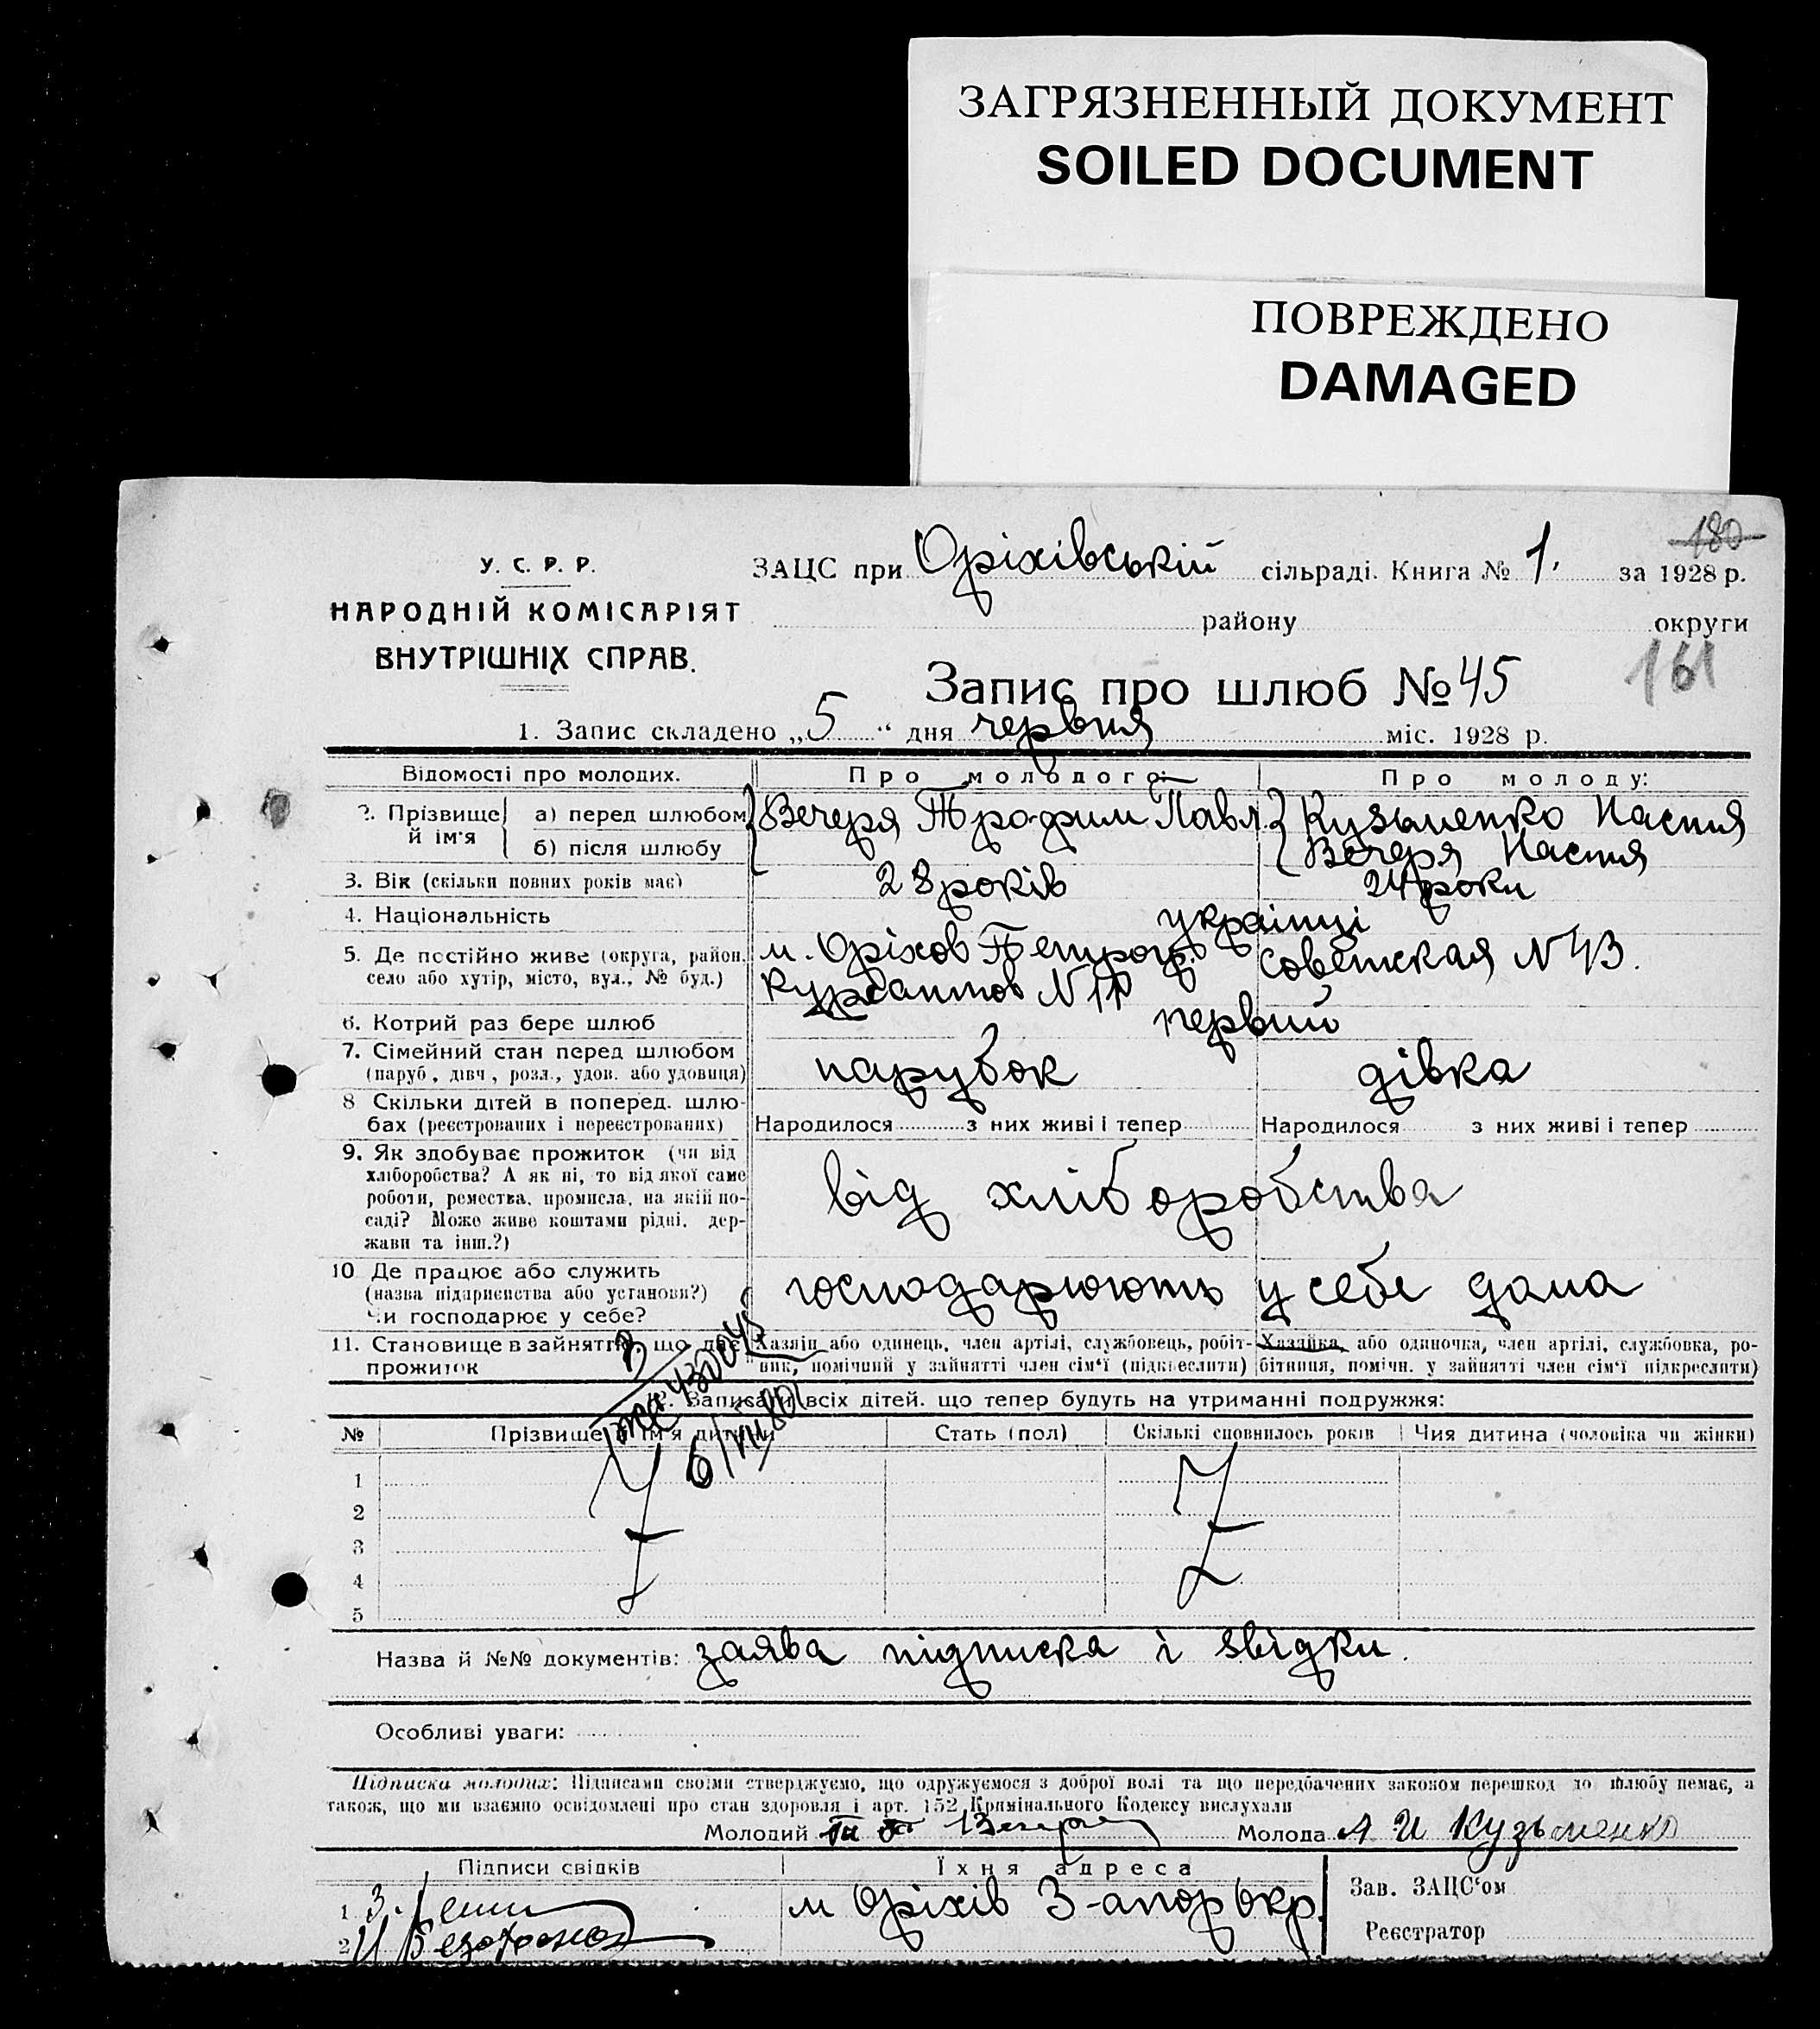 ЗАГРЯЗНЕННЫЙ ДОКУМЕНТ
SOILED DOCUMENT
ПОВРЕЖДЕНО
DAMAGED
180
У. С. Р. Р.
НАРОДНІЙ КОМІСАРІЯТ
ВНУТРІШНІХ СПРАВ.
ЗАЦС при Оріхівській сільраді. Книга № 1. за 1928 р.
району округи
161
Запис про шлюб № 45
1. Запис складено „5“ дня червня міс. 1928 р.
Відомості про молодих. Про молодого: Про молоду:
2. Прізвище й ім'я а) перед шлюбом Вечеря Трофим Павл. Кузьменко Настя
б) після шлюбу Вечеря Настя
3. Вік (скільки повних років має) 28 років 24 роки
4. Національність українці
5. Де постійно живе (округа, район, м. Оріхов Петрогр. Советская N 43.
село або хутір, місто, вул., № буд.) Курсантов N 11
6. Котрий раз бере шлюб первий
7. Сімейний стан перед шлюбом парубок дівка
(паруб., дівч., розл., удов. або удовиця)
8 Скільки дітей в поперед. шлю-
бах (реєстрованих і нереєстрованих) Народилося з них живі і тепер Народилося з них живі і тепер
9. Як здобуває прожиток (чи від
хліборобства? А як ні, то від якої саме
роботи, ремества, промисла, на якій по-
саді? Може живе коштами рідні, дер-
жави та інш.?)
від хліборобства
10 Де працює або служить
(назва підприємства або установи?)
Чи господарює у себе?
господарюють у себе дома
11. Становище в зайнятті, що дає Хазяїн або одинець, член артілі, службовець, робіт- Хазяйка, або одиночка, член артілі, службовка, ро-
прожиток ник, помічний у зайнятті член сім'ї (підкреслити) бітниця, помічн. у зайнятті член сім'ї підкреслити)
12. Записати всіх дітей, що тепер будуть на утриманні подружжя:
№ Прізвище й ім'я дитини Стать (пол) Скількі сповнилось років Чия дитина (чоловіка чи жінки)
1
2
3
4
5
Назва й №№ документів: заява підписка і звідки.
Особливі уваги:
Підписка молодих: Підписами своїми стверджуємо, що одружуємося з доброї волі та що передбачених законом перешкод до шлюбу немає, а
також, що ми взаємно освідомлені про стан здоровля і арт. 152 Кримінального Кодексу вислухали
Молодий Вечеря Молода А И Кузьменко
Підписи свідків Їхня адреса Зав. ЗАЦС'ом
1 м Оріхів З-апор Окр.
2 Реєстратор